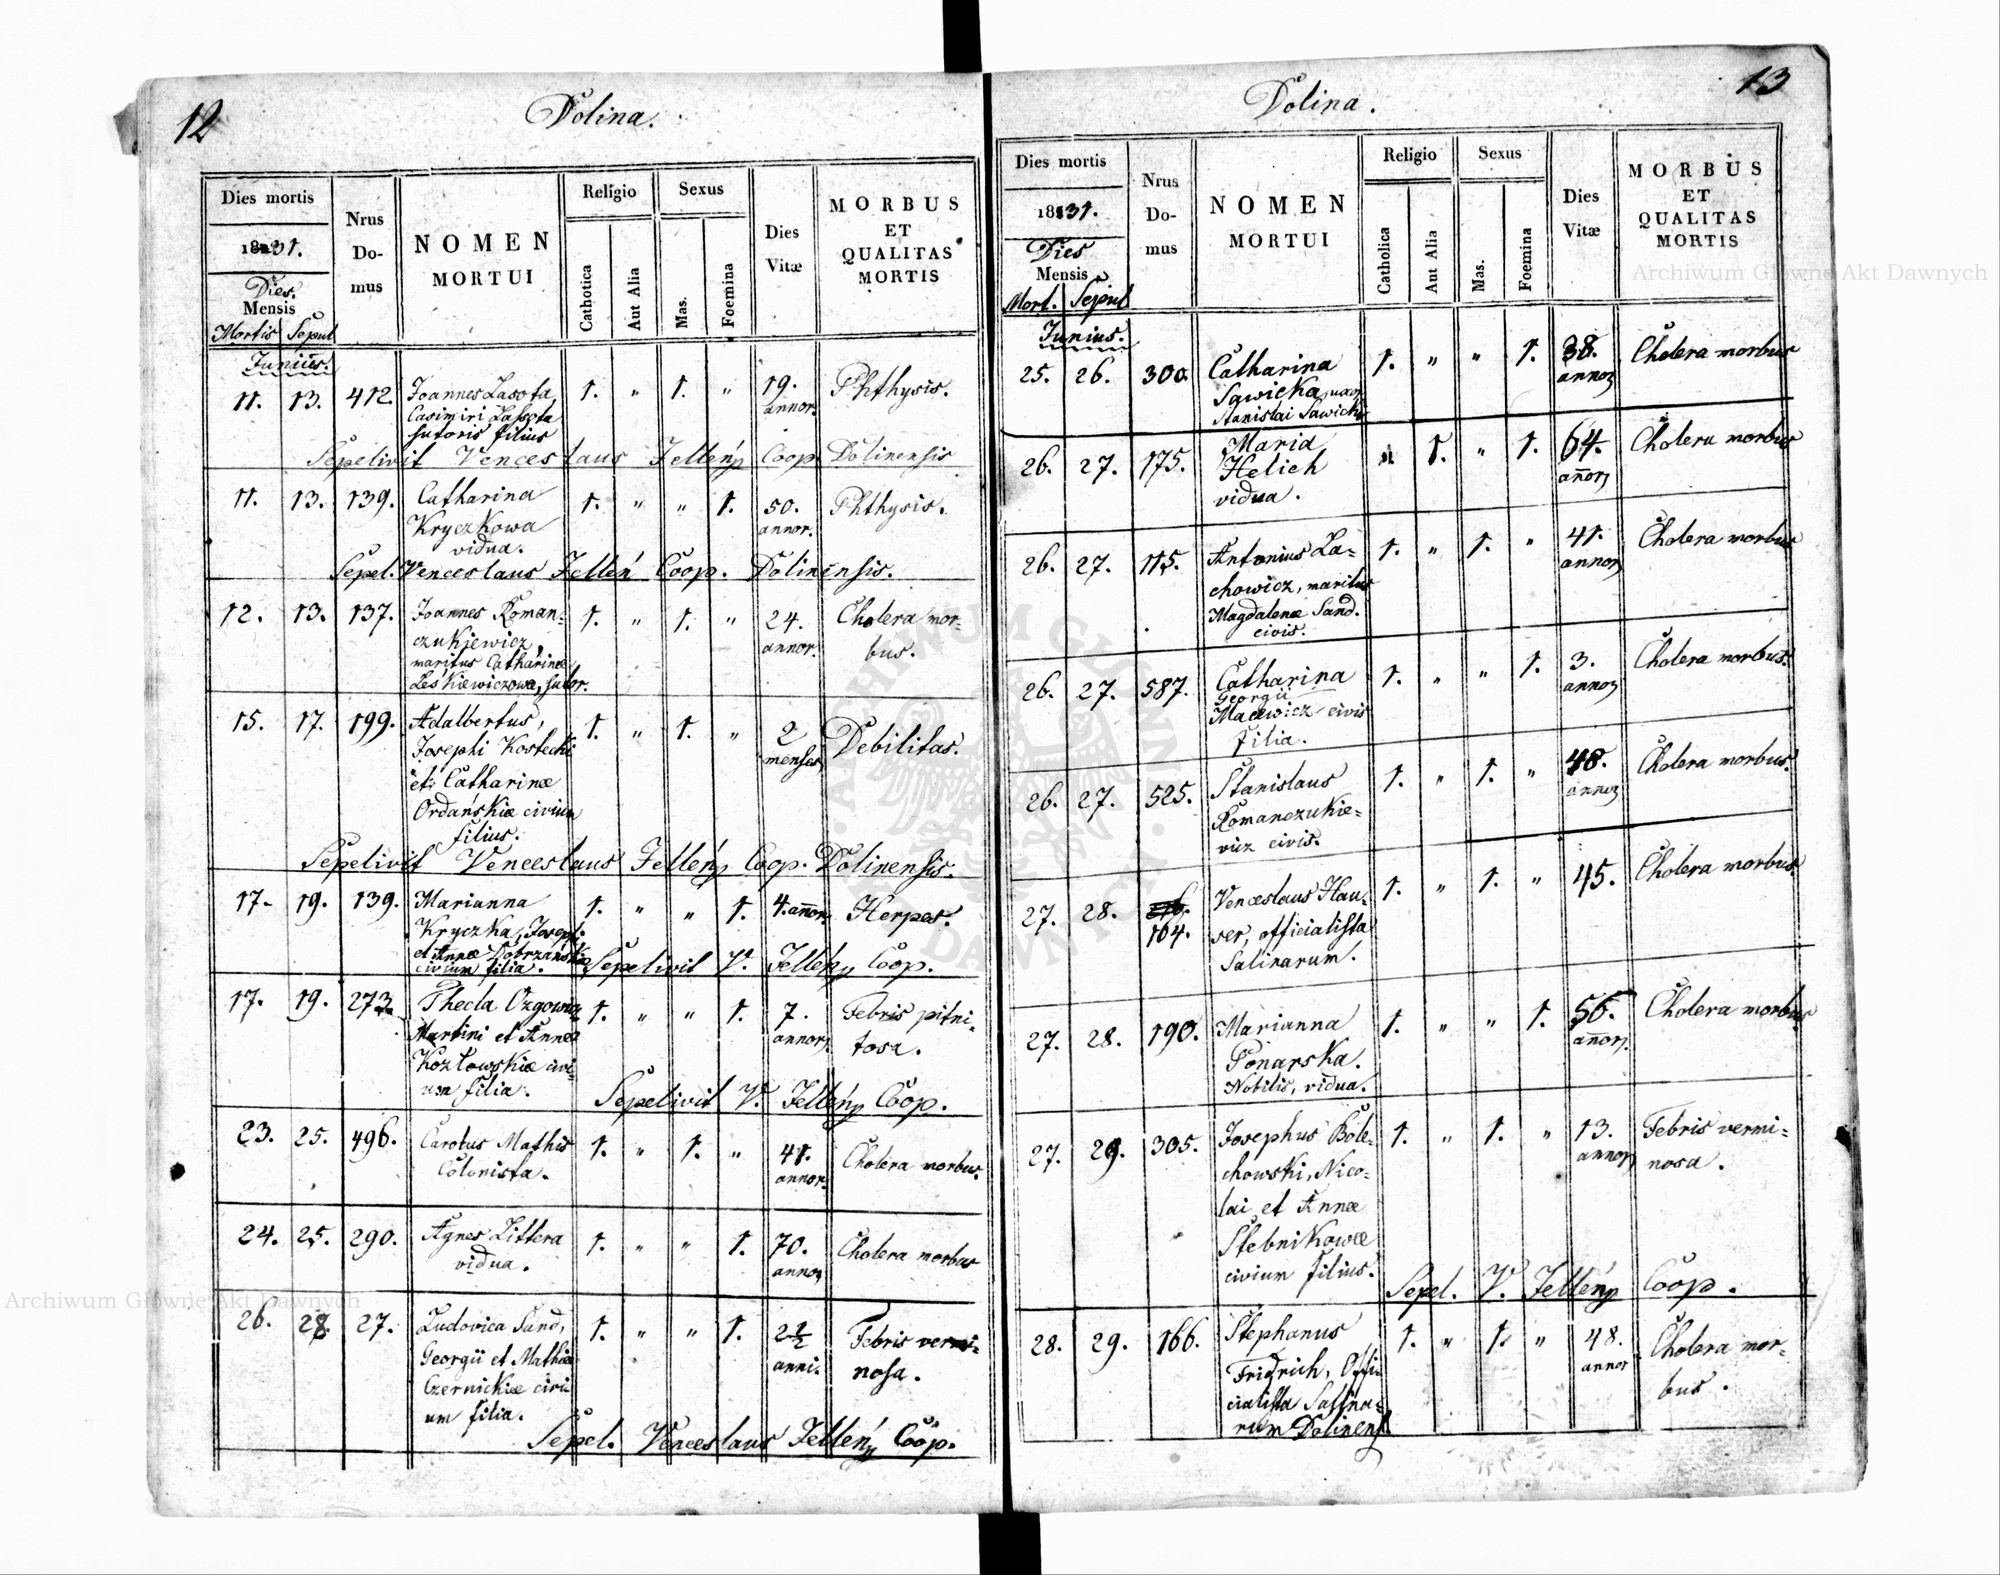 12
Dolina.
Dies mortis
Nrus Do- mus
NOMEN MORTUI
Religio
Sexus
Dies Vitæ
MORBUS ET QUALITAS MORTIS
1831.
Dies.
Mensis
Mortis Sepul
Cathotica
Aut Alia
Mas.
Foemina
Junius.
11. 13. 412. Joannes Lasota, 1. " 1. " 19. Phthysis.
Casimiri Lassota annor.
sutoris filius
Sepelivit Venceslaus Jellény Coop. Dolinensis
11. 13. 139. Catharina 1. " " 1. 50. Phthysis.
Kryczkowa annor.
vidua.
Sepel. Venceslaus Jellén Coop. Dolinensis.
12. 13. 137. Joannes Roman- 1. " 1. " 24. Cholera mor-
czukiewicz, annor. bus.
maritus Catharinæ
Leśkiewiczowa, sutor.
15. 17. 199. Adalbertus, 1. " 1. " 2 Debilitas.
Josephi Kostecki menses
et Catharinæ
Ordańskiæ civium
filius.
Sepelivit Venceslaus Jellény Coop. Dolinensis.
17. 19. 139. Marianna 1. " " 1. 4. annor. Herpes.
Kryczka, Josephi
et Annæ Dobrzańskiæ
civium filia.
Sepelivit V. Jellény Coop.
17. 19. 273. Thecla 1. " " 1. 7. Febris pitui-
Martini et Annæ annor. tosa.
Kozłowskiæ civi-
um filia.
Sepelivit V. Jellény Coop.
23. 25. 496. Carolus Mathis 1. " 1. " 41. Cholera morbus.
Colonista. annor.
24. 25. 290. Agnes Littera 1. " " 1. 70. Cholera morbus
vidua. annor
26. 28. 27. Ludovica Sand, 1. " " 1. 2½ Febris vermi-
Georgii et Mathiæ anni. nosa.
Czernickiæ civi
um filia.
Sepel. Venceslaus Jellény Coop.
13
Dolina.
Dies mortis
Nrus Do- mus
NOMEN MORTUI
Religio
Sexus
Dies Vitæ
MORBUS ET QUALITAS MORTIS
1831.
Dies
Mensis
Mort. Sepul
Catholica
Aut Alia
Mas.
Foemina
Junius.
25. 26. 300. Catharina 1. " " 1. 38. Cholera morbus
Sawicka, uxor annor
Stanislai Sawicki
26. 27. 175. Maria 1. " 1. 64. Cholera morbus
Helich annor
vidua.
26. 27. 115. Antonius La- 1. " 1. " 41. Cholera morbus
chowicz, maritus annor
Magdalenæ Sand.
civis.
26. 27. 587. Catharina 1. " " 1. 3. Cholera morbus.
Georgii annor
Macewicz civis
filia.
26. 27. 525. Stanislaus 1. " 1. " 48. Cholera morbus.
Romanczukie- annor
vicz civis.
27. 28. 164. Venceslaus Hau- 1. " 1. " 45. Cholera morbus.
ser, officialista
Salinarum.
27. 28. 190. Marianna 1. " " 1. 56. Cholera morbus.
Ponarska. annor.
Nobilis, vidua.
27. 29. 305. Josephus Bole- 1. " 1. " 13. Febris vermi-
chowski, Nico- annor nosa.
lai et Annæ
Stebnikowæ
civium filius.
Sepel. V. Jellény Coop.
28. 29. 166. Stephanus 1. " 1. " 48. Cholera mor-
Fridrich, Offi- annor bus.
cialista Salina-
rum Dolinens.
Archiwum Główne Akt Dawnych
Archiwum Główne Akt Dawnych
ARCHIWUM GŁÓWNE AKT DAWNYCH